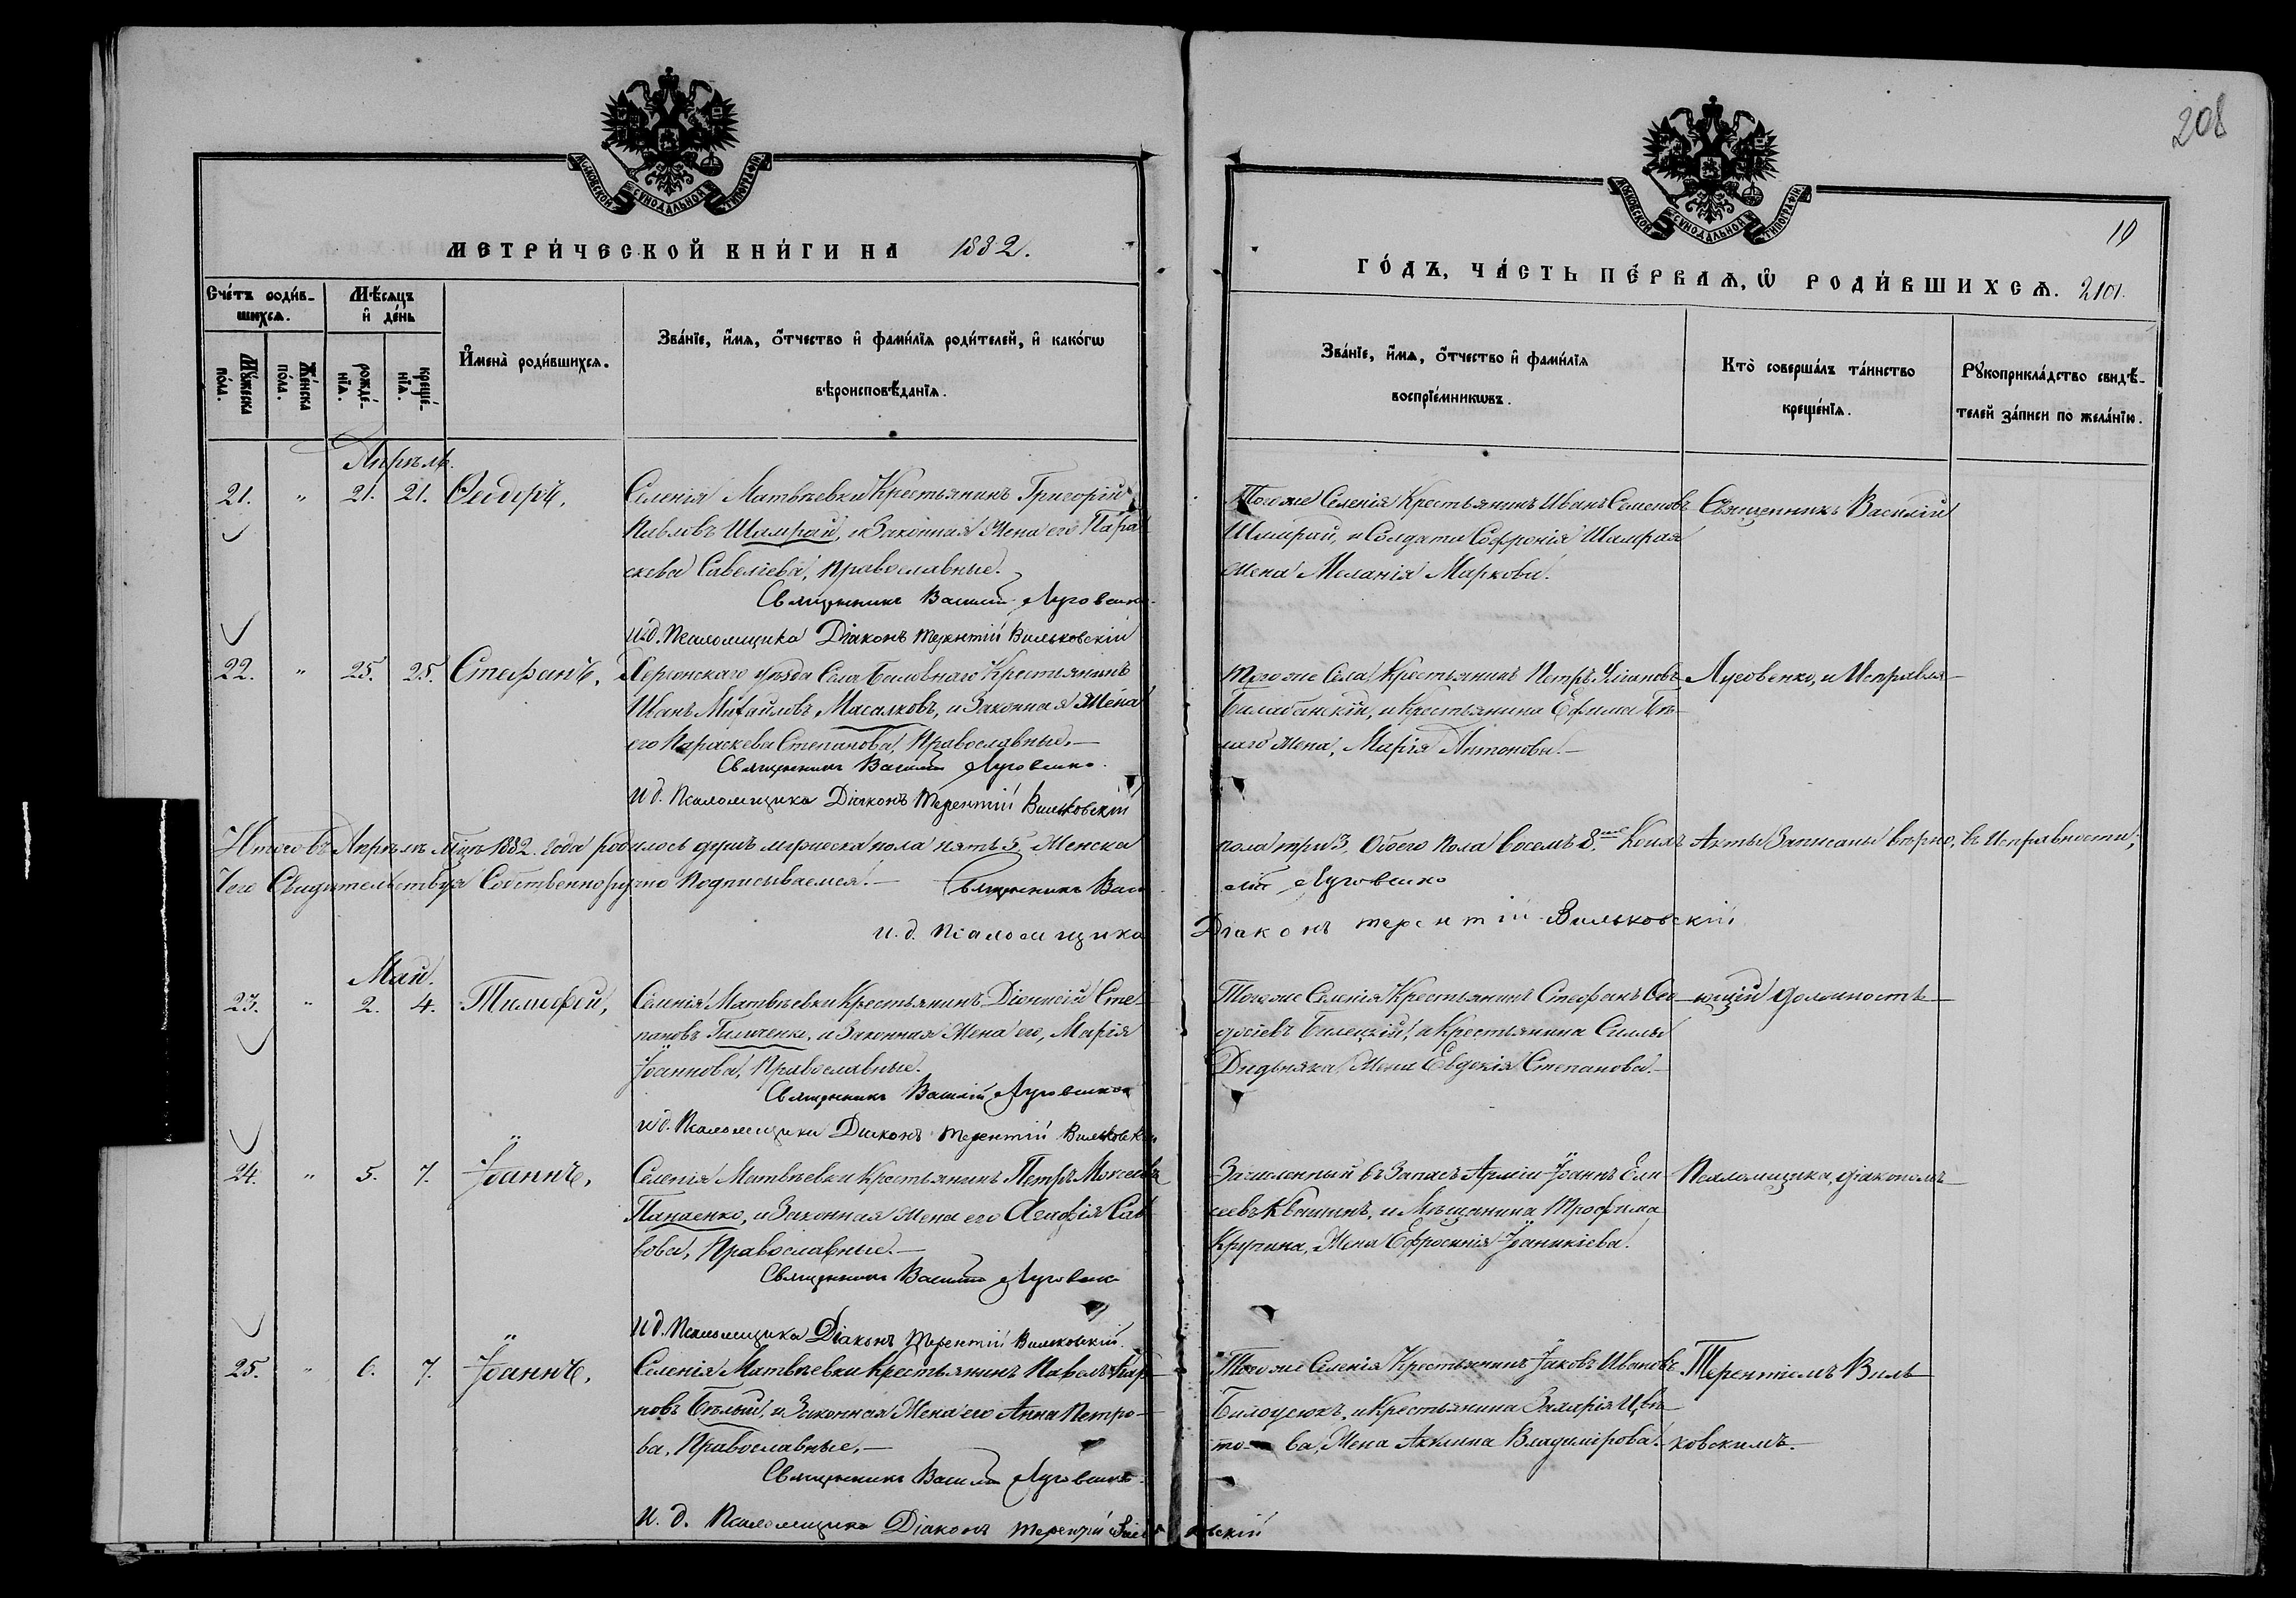 208
МОСКОВСКОЙ СѴНОДАЛЬНОЙ ТИПОГРАФІИ
МОСКОВСКОЙ СѴНОДАЛЬНОЙ ТИПОГРАФІИ
10
МЕТРИ́ЧЕСКОЙ КНИ́ГИ НА 1882.
ГО́ДЪ, ЧА́СТЬ ПЕ́РВАѦ, Ѿ РОДИ́ВШИХСѦ. 2101.
Сче́тъ роди́в-
шихсѧ.
Мѣ́сѧцъ
и де́нь
Мꙋ́жеска по́ла.
Же́нска по́ла.
рожде́-нїѧ.
креще́-нїѧ.
Имена̀ роди́вшихсѧ.
Зва́нїе, и́мѧ, о́тчество и фами́лїѧ роди́телей, и како́гѡ
вѣроисповѣ́данїѧ.
Зва́нїе, и́мѧ, о́тчество и фами́лїѧ
воспрїе́мникѡвъ.
Кто̀ соверша́лъ та́инство
креще́нїѧ.
Рꙋкоприкла́дство свидѣ́-
телей за́писи по жела́нїю.
Апрѣль.
21. " 21. 21. Ѳеодоръ,
Селенія Матвѣевки Крестьянинъ Григорій
Павловъ Шамрай, и Законная Жена его Пара-
скева Савеліева, Православные.
Священникъ Василій Луговенко
и.д. Псаломщика Діаконъ Терентій Вильковскій
Того же Селенія Крестьянинъ Иванъ Семеновъ
Шамрай, и Солдата Софронія Шамрая
жена Меланія Маркова.
Священникъ Василій
22. " 25. 25. Стефанъ,
Херсонскаго уѣзда Села Крестьянинъ
Иванъ Михайловъ Масалковъ, и Законная Жена
его Параскева Степанова, Православные.
Священникъ Василій Луговенко.
и д. Псаломщика Діаконъ Терентій Вильковскій
Того же Села Крестьянинъ Петръ
и Крестьянина Ефима Бѣ-
лаго Жена, Марія Антонова.
Луговенко, и Исправля-
Итого въ Апрѣлѣ м-цѣ 1882. года родилось душъ мужеска пола пять 5. Женска
пола три 3, Обоего пола восемь 8. Коихъ Акты Записаны вѣрно, въ Исправности,
Чего Свидѣтельствуя Собственноручно Подписываемся. Священникъ Васи
лій Луговенко
и. д. Псаломщика
Діаконъ Терентій Вильковскій
Май.
23. " 2. 4. Тимофей,
Селенія Матвѣевки Крестьянинъ Діонисій Сте-
пановъ и Законная Жена его, Марія
Іоаннова, Православные.
Священникъ Василій Луговенко
и д. Псаломщика Діаконъ Терентій Вильковскій
Того же Селенія Крестьянинъ Стефанъ Ѳео-
досіевъ Билецкій, и Крестьянина Силы
Жена Евдокія Степанова.
ющій должность
24. " 5. 7. Іоаннъ,
Селенія Матвѣевки Крестьянинъ Петръ Моисеевъ
Панасенко, и Законная Жена его Агафія Сав-
вова, Православные.
Священникъ Василій Луговенко
и д. Псаломщика Діаконъ Терентій Вильковскій
въ Запасъ Арміи Іоаннъ Ели-
сеевъ Квашинъ, и Мѣщанина Трофима
Крупина, Жена Ефросинія Іоаникіева.
Псаломщика, діакономъ
25. " 6. 7. Іоаннъ,
Селенія Матвѣевки Крестьянинъ Павелъ Кар-
повъ Бѣлый, и Законная Жена его Анна Петро-
ва, Православные,
Священникъ Василій Луговенко
и. д. Псаломщика Діаконъ Терентій Вильковскій
Того же Селенія Крестьянинъ Іаковъ Ивановъ
Билоусюкъ, и Крестьянина Захарія Цвѣ-
то ва, Жена Акилина Владимірова.
Терентіемъ Виль-
ковскимъ.